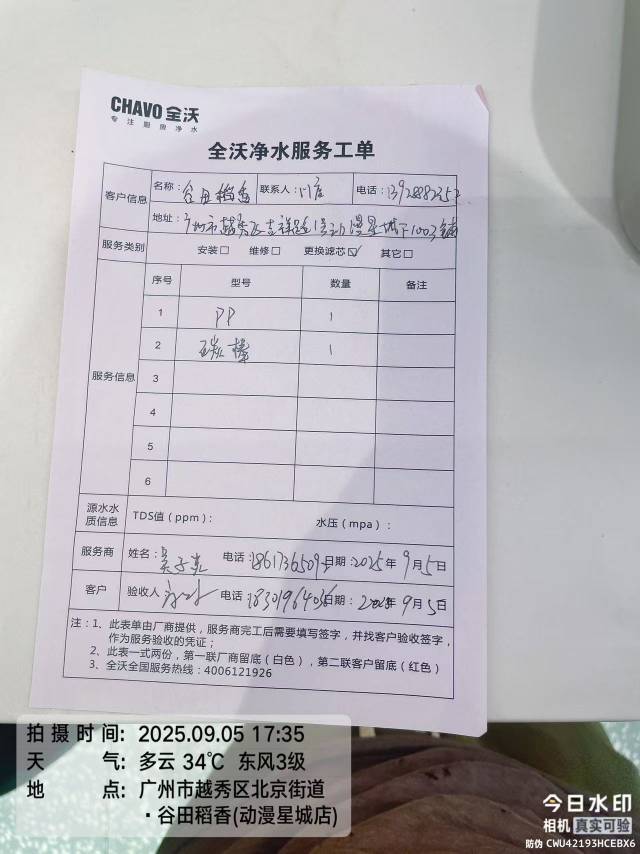 CHAVO 全沃
专注厨房净水
全沃净水服务工单
客户信息 名称：谷田稻香 联系人：门店 电话：
地址：广州市越秀区吉祥路1号动漫星城下1003铺
服务类别 安装□ 维修□ 更换滤芯☑ 其它□
服务信息 序号 型号 数量 备注
1 PP 1
2 碳棒 1
3
4
5
6
源水水质信息 TDS值（ppm）： 水压（mpa）：
服务商 姓名： 电话： 日期：2025年9月5日
客户 验收人 电话： 日期：2025年9月5日
注：1、此表单由厂商提供，服务商完工后需要填写签字，并找客户验收签字，
作为服务验收的凭证；
2、此表一式两份，第一联厂商留底（白色），第二联客户留底（红色）
3、全沃全国服务热线：4006121926
拍摄时间：2025.09.05 17:35
天气：多云 34℃ 东风3级
地点：广州市越秀区北京街道
·谷田稻香(动漫星城店)
今日水印
相机 真实可验
防伪 CWU42193HCEBX6